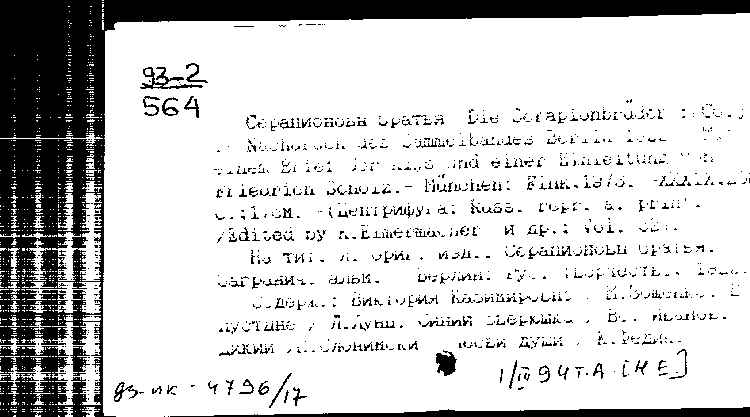 93-2
564
Серапионовы братья Die Serapionbrüder :
Nachdruck des Sammelbandes Berlin
einem Brief der und einer Einleitung von
Friedrich Scholz.- München: Fink.1973. -XXXIX.
с.;17см. -(Центрифуга: Russ. repr. a. print.
/Edited by K.Eimermacher и др.; Vol.
На тит. л. ориг. изд.: Серапионовы братья.
Загранич. альм. Берлин: Рус. творчество,
Содерж.: Виктория Казимировна / М.Зощенко. В
пустыне / Л.Лунц. Синий зверюшка / Вс. Иванов.
Дикий / М.Слонимский души / К.Федин.
93-ик-4796/17
1/IV 94 Т.А. [НЕ]